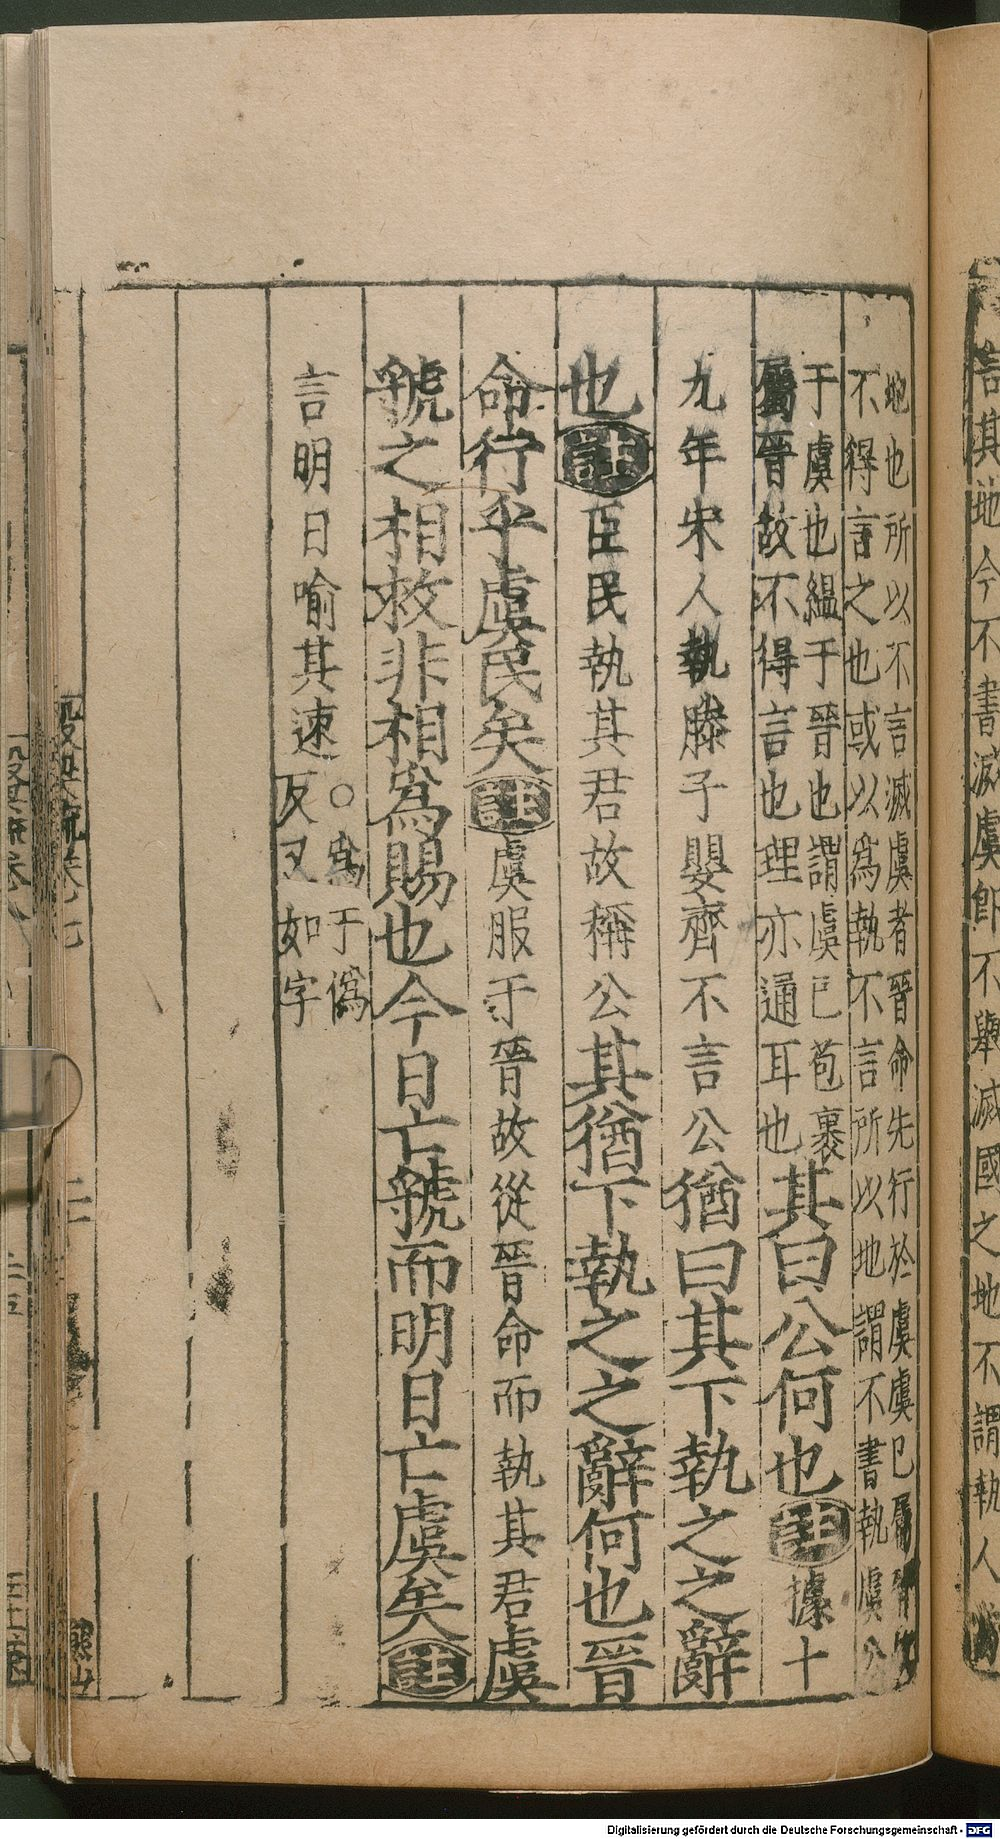 言其地今不書滅虞即不舉滅國之地不謂執人
地也所以不言滅虞者晉命先行於虞虞已屬晉
不得言之也或以爲執不言所以地謂不書執虞公
于虞也緼于晉也謂虞已苞裹
屬晉故不得言也理亦通耳也
其曰公何也註據十
九年宋人執滕子嬰齊不言公猶曰其下執之之辭
也註臣民執其君故稱公其猶下執之之辭何也晉
命行乎虞民矣註虞服于晉故從晉命而執其君虞
虢之相救非相爲賜也今日亡虢而明日亡虞矣註
言明日喻其速○爲于僞
反又如字
Digitalisierung gefördert durch die Deutsche Forschungsgemeinschaft - DFG